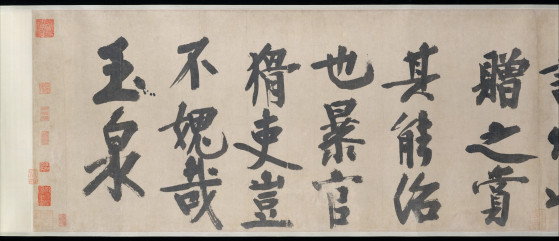 贈之賞
其能治
也暴官
猾吏豈
不媿哉
玉泉